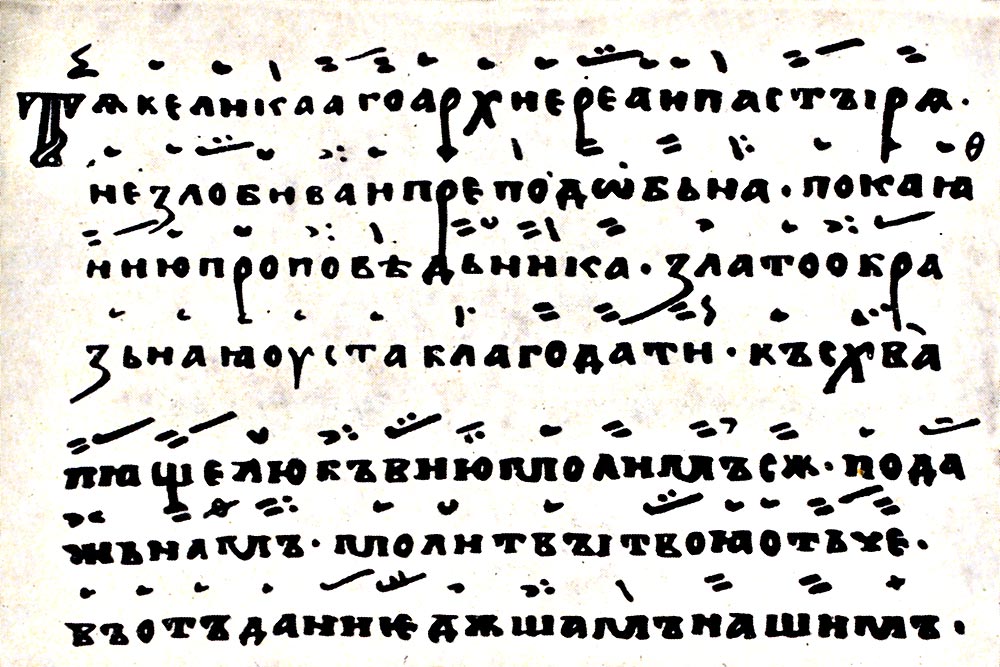 Тѧвеликаагоархиереаипастъірѧ·
незлобиваипреподѡбьна·покаꙗ
ниюпроповѣдьника·златообра
зьнаꙗоустаблагодати·въсхва
лꙗщелюбъвиюмолимъсѫ·пода
жьнамъ·молитвъітвоꙗотьче·
въотъданиѥдѫшамънашимъ·